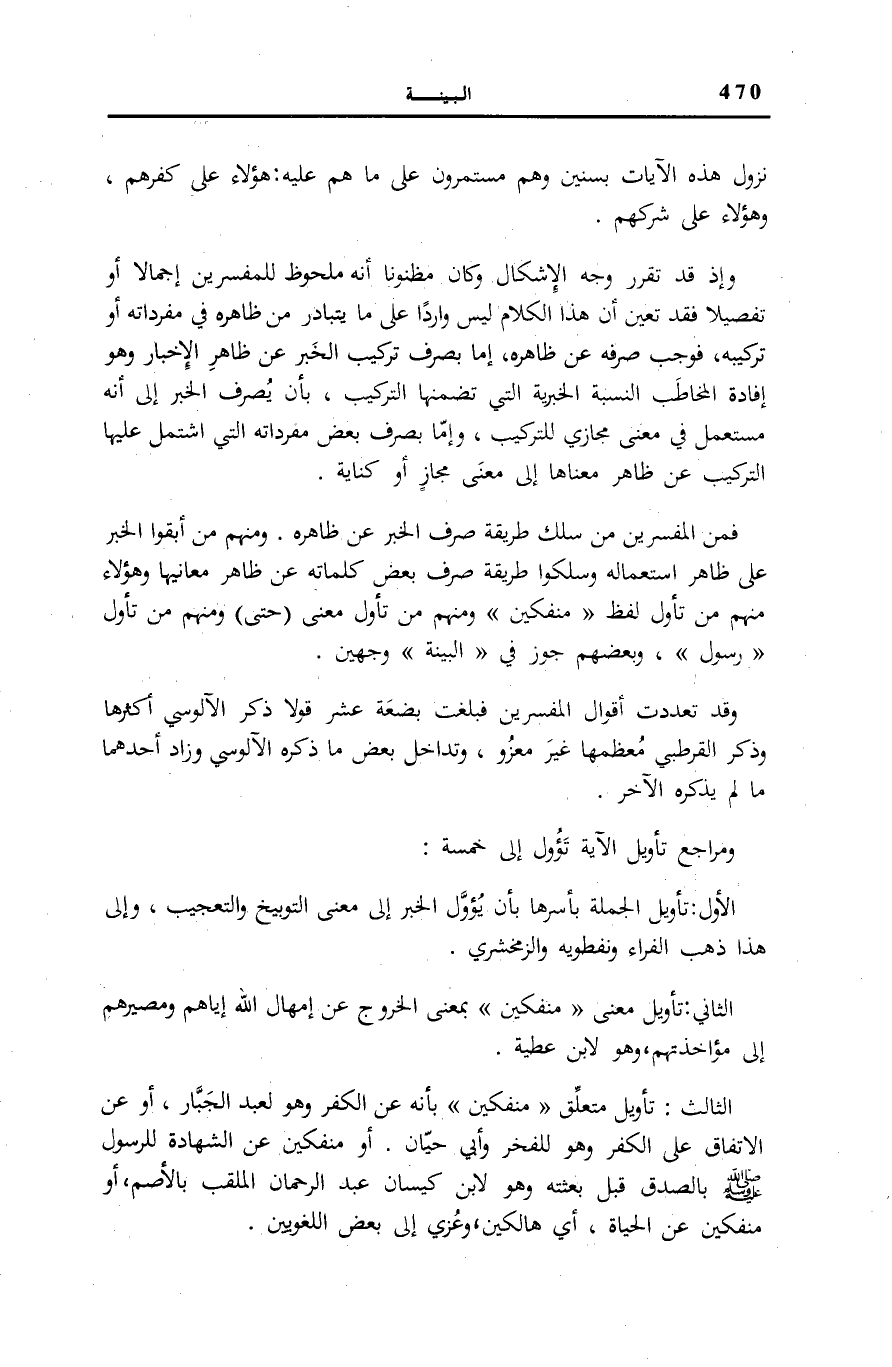 470
البينـــة
نزول هذه الآيات بسنين وهم مستمرون على ما هم عليه:هؤلاء على كفرهم ،
وهؤلاء على شركهم .
وإذ قد تقرر وجه الإِشكال وكان مظنونا أنه ملحوظ للمفسرين إجمالا أو
تفصيلا فقد تعين أن هذا الكلام ليس واردًا على ما يتبادر من ظاهره في مفرداته أو
تركيبه، فوجب صرفه عن ظاهره، إما بصرف تركيب الخَبر عن ظاهرِ الإِخبار وهو
إفادة المخاطَب النسبة الخبرية التي تضمنها التركيب ، بأن يُصرف الخبر إلى أنه
مستعمل في معنى مجازي للتركيب ، وإمّا بصرف بعض مفرداته التي اشتمل عليها
التركيب عن ظاهر معناها إلى معنَى مجازٍ أو كناية .
فمن المفسرين من سلك طريقة صرف الخبر عن ظاهره . ومنهم من أبقوا الخبر
على ظاهر استعماله وسلكوا طريقة صرف بعض كلماته عن ظاهر معانيها وهؤلاء
منهم من تأول لفظ « منفكين » ومنهم من تأول معنى (حتى) ومنهم من تأول
« رسول » ، وبعضهم جوز في « البينة » وجهين .
وقد تعددت أقوال المفسرين فبلغت بضعَة عشر قولا ذكر الآلوسي أكثرها
وذكر القرطبي مُعظمها غيرَ معزُو ، وتداخل بعض ما ذكره الآلوسي وزاد أحدهما
ما لم يذكره الآخر .
ومراجع تأويل الآية تَؤُول إلى خمسة :
الأول:تأويل الجملة بأسرها بأن يُؤوَّل الخبر إلى معنى التوبيخ والتعجيب ، وإلى
هذا ذهب الفراء ونفطويه والزمخشري .
الثاني:تأويل معنى « منفكين » بمعنى الخروج عن إمهال الله إياهم ومصيرهم
إلى مؤاخذتهم،وهو لابن عطية .
الثالث : تأويل متعلِّق « منفكين » بأنه عن الكفر وهو لعبد الجَبَّار ، أو عن
الاتفاق على الكفر وهو للفخر وأبي حيّان . أو منفكين عن الشهادة للرسول
ﷺ بالصدق قبل بعثته وهو لابن كيسان عبد الرحمان الملقب بالأصم،أو
منفكين عن الحياة ، أي هالكين،وعُزي إلى بعض اللغويين .